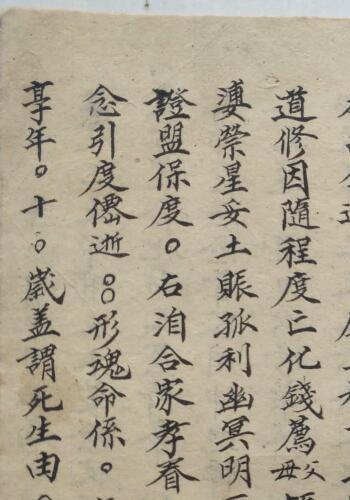 道修因隨程度亡化錢薦父母
婆榮星妥土賑孤利幽冥明
證盟保度○右洎合家孝眷
念引度僊逝○○形魂命係○
享年○十○歲蓋謂死生由